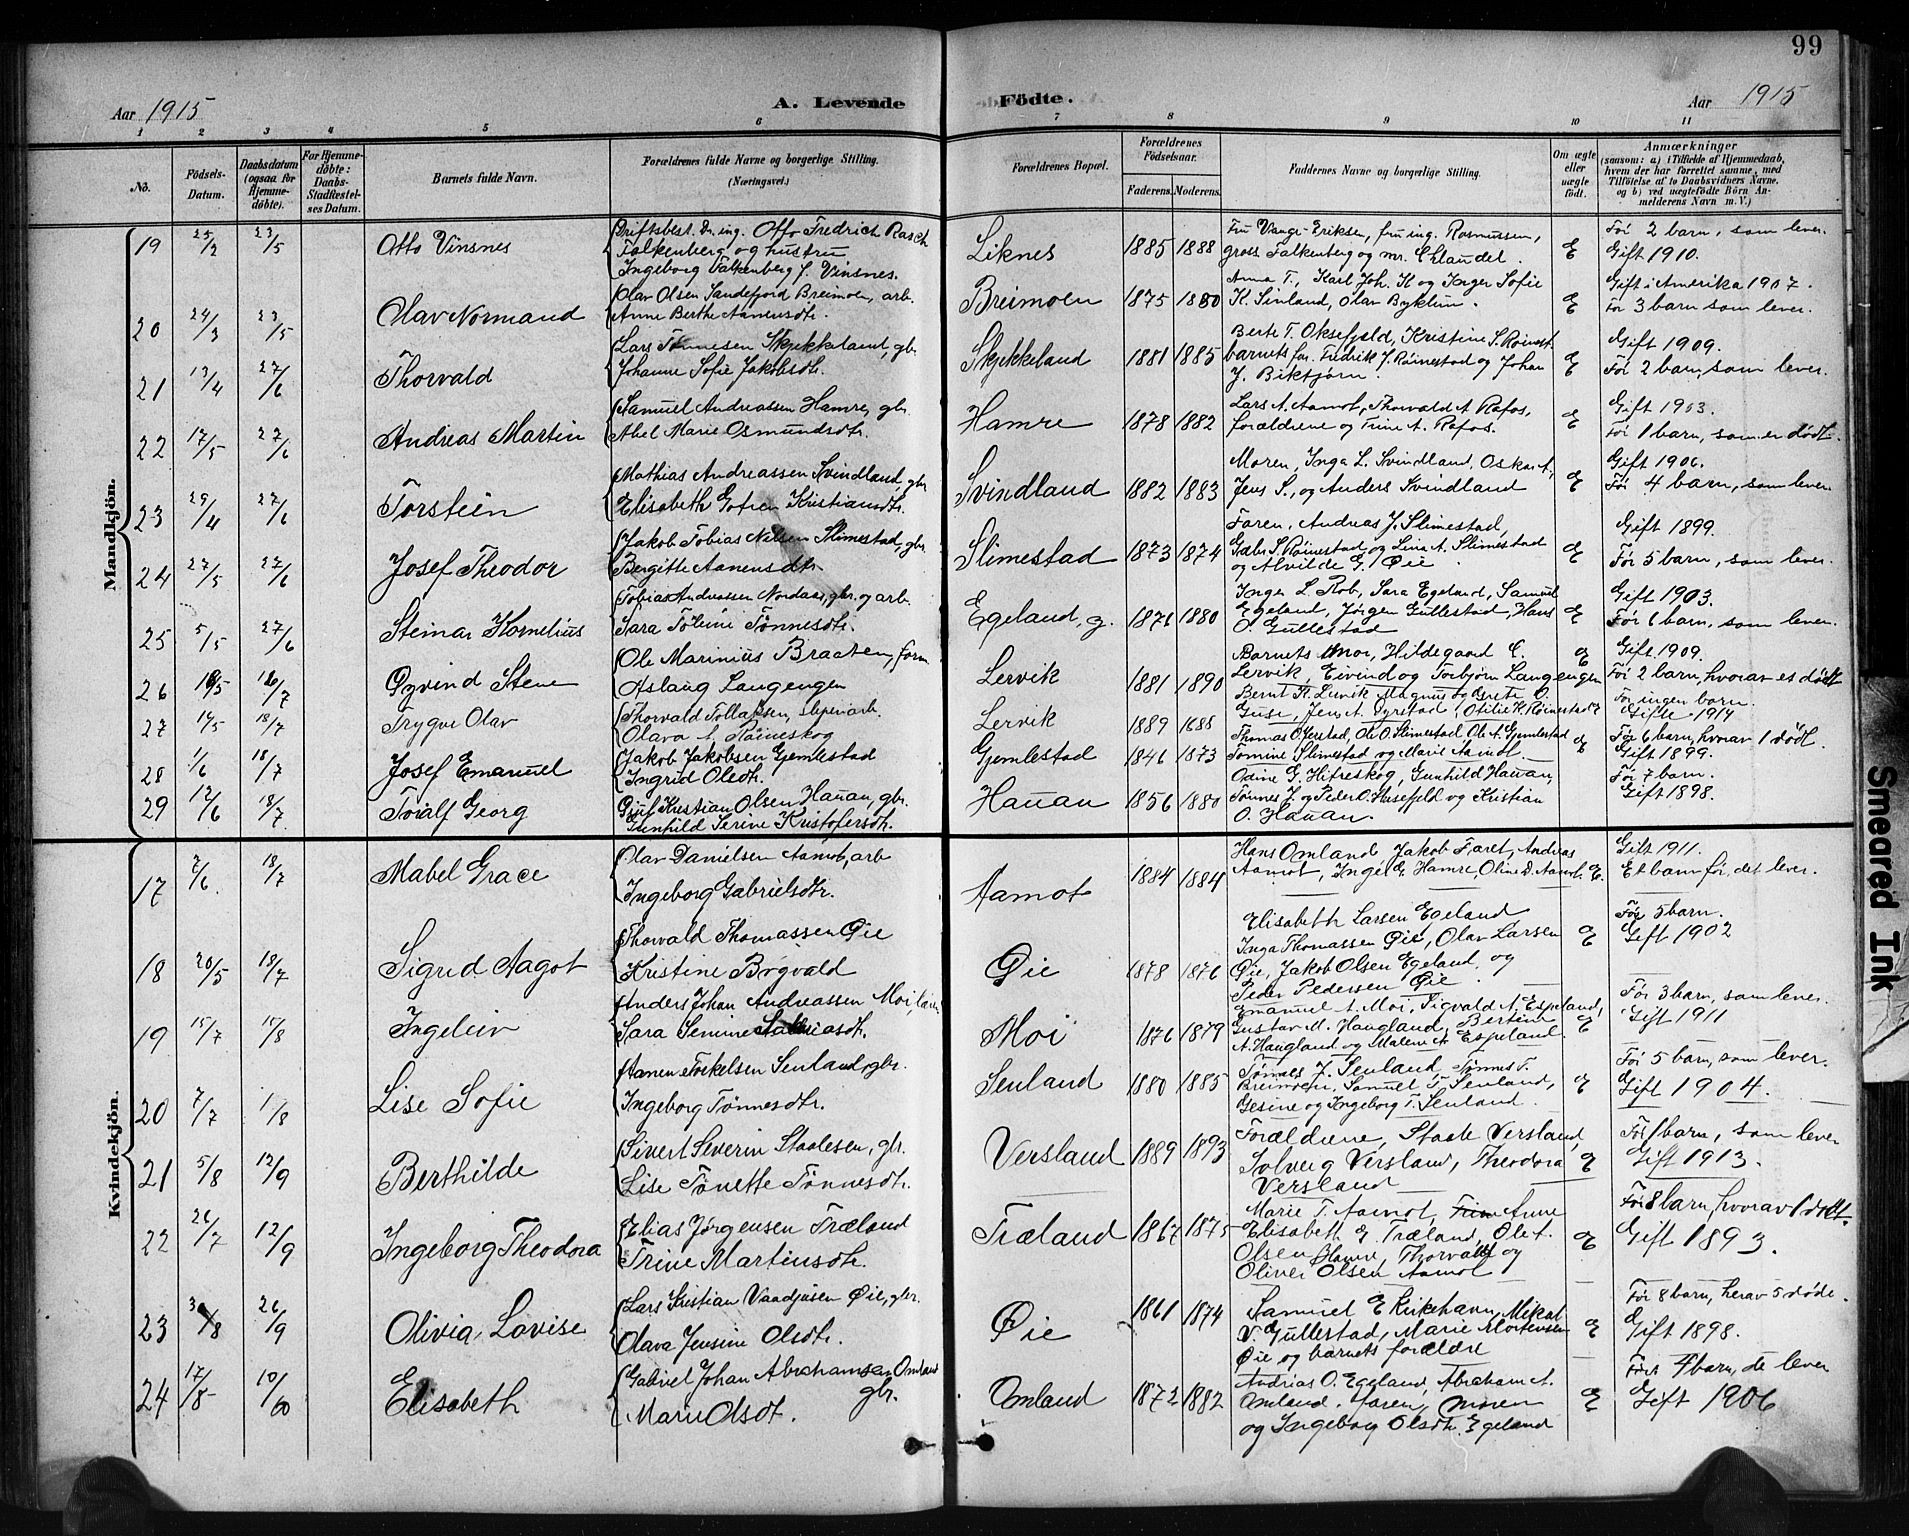 99
Aar 1915 A. Levende Födte. Aar 1915
1 2 3 4 5 6 7 8 9 10 11
No. Födsels-Datum. Daabsdatum (ogsaa for Hjemme-döbte). For Hjemme-döbte: Daabs-Stadfæstel-ses Datum. Barnets fulde Navn. Forældrenes fulde Navne og borgerlige Stilling. (Næringsvei.) Forældrenes Bopæl. Forældrenes Födselsaar. Faderens. Moderens. Faddernes Navne og borgerlige Stilling. Om ægte eller uægte födt. Anmærkninger (saasom: a) i Tilfælde af Hjemmedaab, hvem der har forrettet samme, med Tilföielse af to Daabsvidners Navne, og b) ved uægtefödte Börn An-melderens Navn m. V.)
Mandkjön.
19 25/2 23/5 Otto Vinsnes Driftsbest. Dr. ing. Otto Fredrich Rasch Liknes 1885 1888 Fru Vange-Eriksen, fru ing. Rasmussen, E Før 2 barn, som lever.
Falkenberg og hustru gross. Falkenberg og mr. Chlaudel. Gift 1910.
Ingeborg Falkenberg f. Vinsnes.
20 24/3 23/5 Olav Normand Olav Olsen Sandefjord Breimoen, arb. Breimoen 1875 1880 Anna T., Karl Joh. K og Inger Sofie E Gift i Amerika 1907.
Anne Berthe Aanensdtr. K. Sinland, Olav Byklum. Før 3 barn som lever.
21 13/4 27/6 Thorvald Lars Tønnesen Skjekkeland, gbr. Skjekkeland 1881 1885 Berte T. Oksefjeld, Kristine S. Røinest. E Gift 1909.
Johanne Sofie Jakobsdtr. barnets far. Fredrik J. Røinestad og Johan Før 2 barn, som lever.
J. Biktjørn.
22 17/5 27/6 Andreas Martin Samuel Andreassen Hamre, gbr. Hamre 1878 1882 Lars A. Aamot, Thorvald A. Rafos, E Gift 1903.
Abel Marie Osmundsdtr. forældrene og Trine A. Rafos. Før 1 barn, som er dødt.
23 29/4 27/6 Torstein Mathias Andreassen Svindland, gbr Svindland 1882 1883 Moren, Inga L. Svindland, Oskar A, E Gift 1906.
Elisabeth Gofien Kristiansdtr. Jens S., og Anders Svindland Før 4 barn, som lever
24 27/5 27/6 Josef Theodor Jakob Tobias Nilsen Slimestad, gbr. Slimestad 1873 1874 Faren, Andreas J. Slimestad, E Gift 1899.
Bergitte Aanensdtr. Gabr. S. Røinestad og Lina A. Slimestad Før 5 barn, som lever.
og Alvilde G. Øie
25 5/5 27/6 Steinar Kornelius Tobias Andreassen Nordaas, gbr. og arb. Egeland, g. 1876 1880 Inger L. Rob, Sara Egeland, Samuel E Gift 1903.
Sara Toline Tønnesdtr. Egeland, Jørgen Gullestad, Hans Før 6 barn, som lever.
O. Gullestad
26 Øyvind Stene Ole Marinius Braaten, form. Lervik 1881 1890 Barnets mor, Hildegaard C. E Gift 1909.
Aslaug Langengen Lervik, Eivind og Torbjørn Langengen Før 2 barn, hvorav et dødt
27 14/5 18/7 Trygve Olav Thorvald Tollaksen, sliperiarb. Lervik 1889 1888 Bernt K. Lervik, Magnus og Grete O. Før ingen barn.
Olava A. Røineskog Guse, Jens A. Dyrstad, Otilie K. Røinestad Gifte 1914
28 1/6 18/7 Josef Emanuel Jakob Jakobsen Gjemlestad Gjemlestad 1846 1873 Thomas O. Ørstad, Ole O. Slimestad, Ole A. Gjemlestad E Før 6 barn, hvorav 1 dødt.
Ingrid Olsdtr. Tomine Slimestad og Marie Aamot. Gift 1899.
29 12/6 18/7 Toralf Georg Kristian Olsen Hauan, gbr. Hauan 1856 1880 Odine G. Hitreskog, Gunhild Hauan, Før 7 barn.
Gunhild Serine Kristofersdtr. Tønnes J. og Peder O. Husefjeld og Kristian Gift 1898.
O. Hauan.
Kvindekjön.
17 2/6 18/7 Mabel Grace Olav Danielsen Aamot, arb Aamot 1884 1884 Hans Omland, Jakob Faret, Andreas E. Gift 1911.
Ingeborg Gabrielsdtr. Aamot, Ingel E. Hamre, Oline D. Aamot. Et barn før, det lever.
18 20/5 18/7 Sigrid Aagot Thorvald Thomassen Øie Øie 1878 1876 Elisabeth Larsen Egeland E Før 5 barn.
Kristine Bøgvald Inga Thomassen Øie, Olav Larsen Gift 1902
Øie, Jakob Olsen Egeland, og
Peder Pedersen Øie
19 15/7 15/8 Ingeleiv Anders Johan Andreassen Moi, Moi 1876 1879 Emanuel A. Moi, Sigvald A. Espeland, E Før 3 barn, som lever.
Sara Semine dtr. Gustav M. Haugland, Bertine Gift 1911
A. Haugland og Malene A. Espeland.
20 7/7 /8 Lise Sofie Aanen Torkelsen Senland, gbr. Senland 1880 1885 Tønnes J. Senland, Tønnes T. E Før 5 barn, som lever.
Ingeborg Tønnesdtr. Breimoen, Samuel T. Senland, Gift 1904.
Gesine og Ingeborg T. Senland.
21 5/8 12/9 Berthilde Sivert Severin Staalesen, gbr. Versland 1889 1893 Forældrene, Staale Versland, E Før 1 barn, som lever
Lise Tonette Tønnesdtr. Solveig Versland, Theodora Gift 1913.
Versland
22 26/7 12/9 Ingeborg Theodora Elias Jørgensen Træland Træland 1867 1875 Marie T. Aamot, Anne E Før 8 barn, hvorav 1 dødt.
Trine Martinsdtr. Elisabeth E. Træland, Ole A. Gift 1893.
Olsen Hamre, Thorvald og
Oliver Olsen Aamot
23 30/8 26/9 Olivia Lovise Lars Kristian Vaadjusen Øie, gbr. Øie 1861 1874 Samuel E Kirkehavn, Mikal E Før 8 barn, herav 5 døde.
Olava Jensine Olsdtr. V. Gullestad, Marie Mortensen Gift 1898.
Øie og barnets forældre
24 17/8 10/10 Elisabeth Gabriel Johan Abrahamsen Omland gbr. Omland 1872 1882 Andrias O. Egeland, Abraham A. E Før 4 barn, de lever
Marie Olsdt. Omland. Faren, Moren Gift 1906
og Ingeborg Olsdtr. Egeland
Smeared Ink